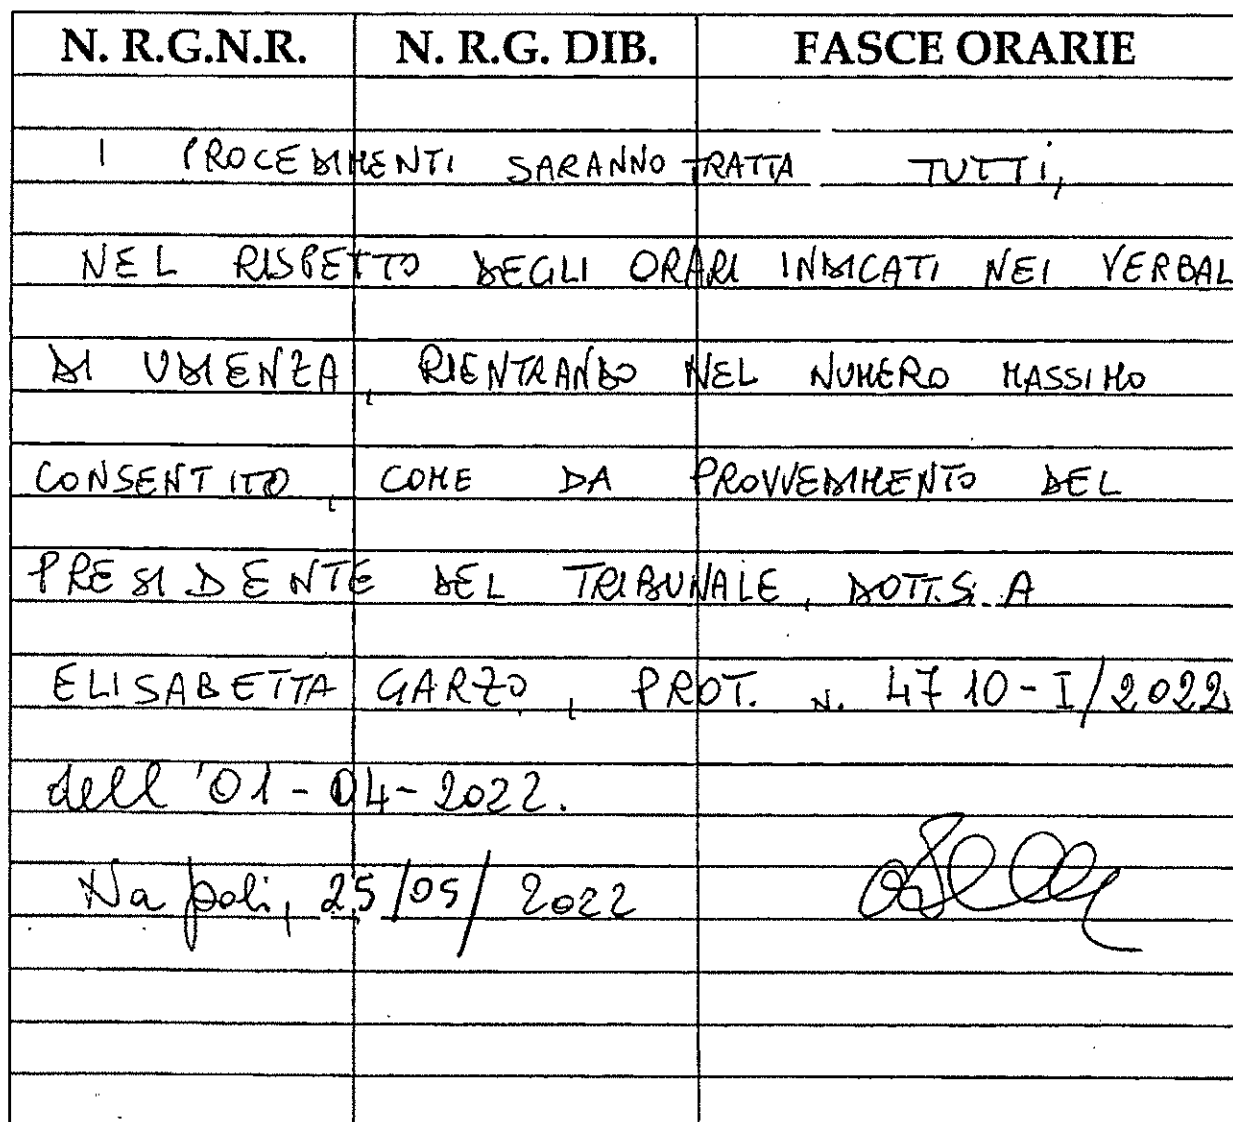 N. R.G.N.R. N. R.G. DIB. FASCE ORARIE
I PROCEDIMENTI SARANNO TRATTA TUTTI,
NEL RISPETTO DEGLI ORARI INDICATI NEI VERBAL
DI UDIENZA, RIENTRANDO NEL NUMERO MASSIMO
CONSENTITO, COME DA PROVVEDIMENTO DEL
PRESIDENTE DEL TRIBUNALE, DOTT.SSA
ELISABETTA GARZO, PROT. N. 4710-I/2022
dell'01-04-2022.
Napoli, 25/05/2022